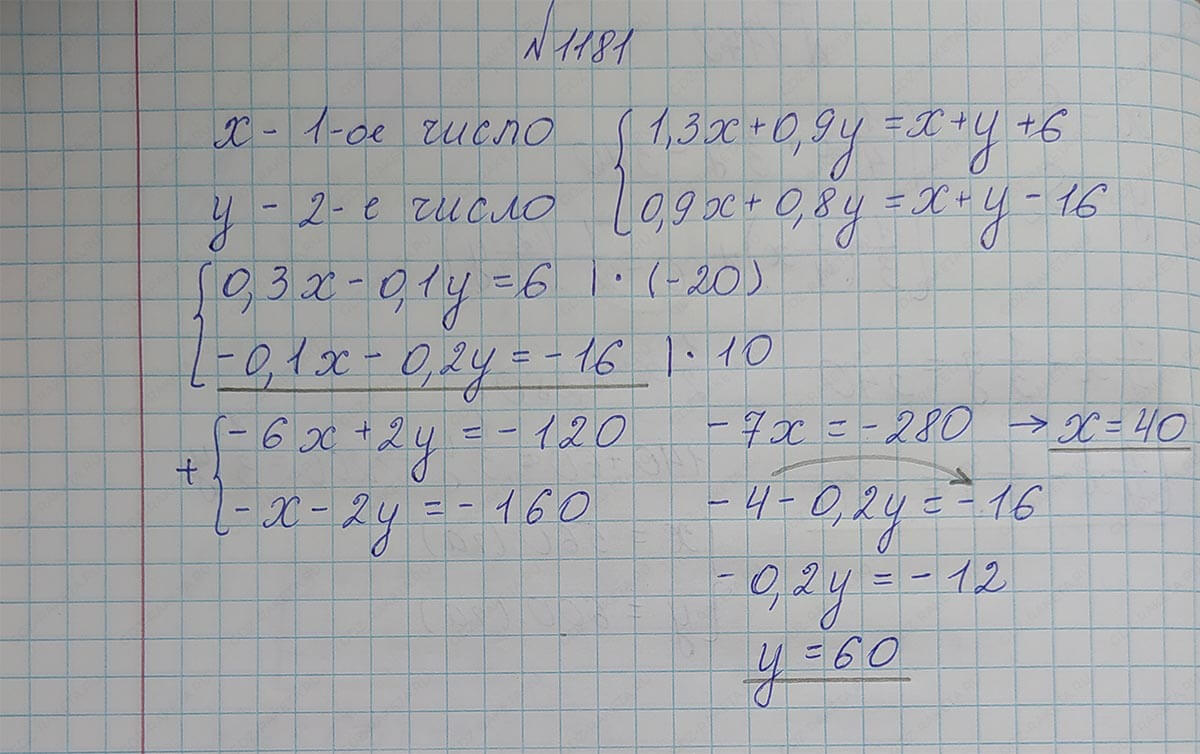 №1181
x - 1-ое число
{ 1,3x + 0,9y = x + y + 6
y - 2-е число
0,9x + 0,8y = x + y - 16
{ 0,3x - 0,1y = 6 | · (-20)
-0,1x - 0,2y = -16 | · 10
+ { -6x + 2y = -120
-x - 2y = -160
-7x = -280 → x = 40
-4 - 0,2y = -16
-0,2y = -12
y = 60